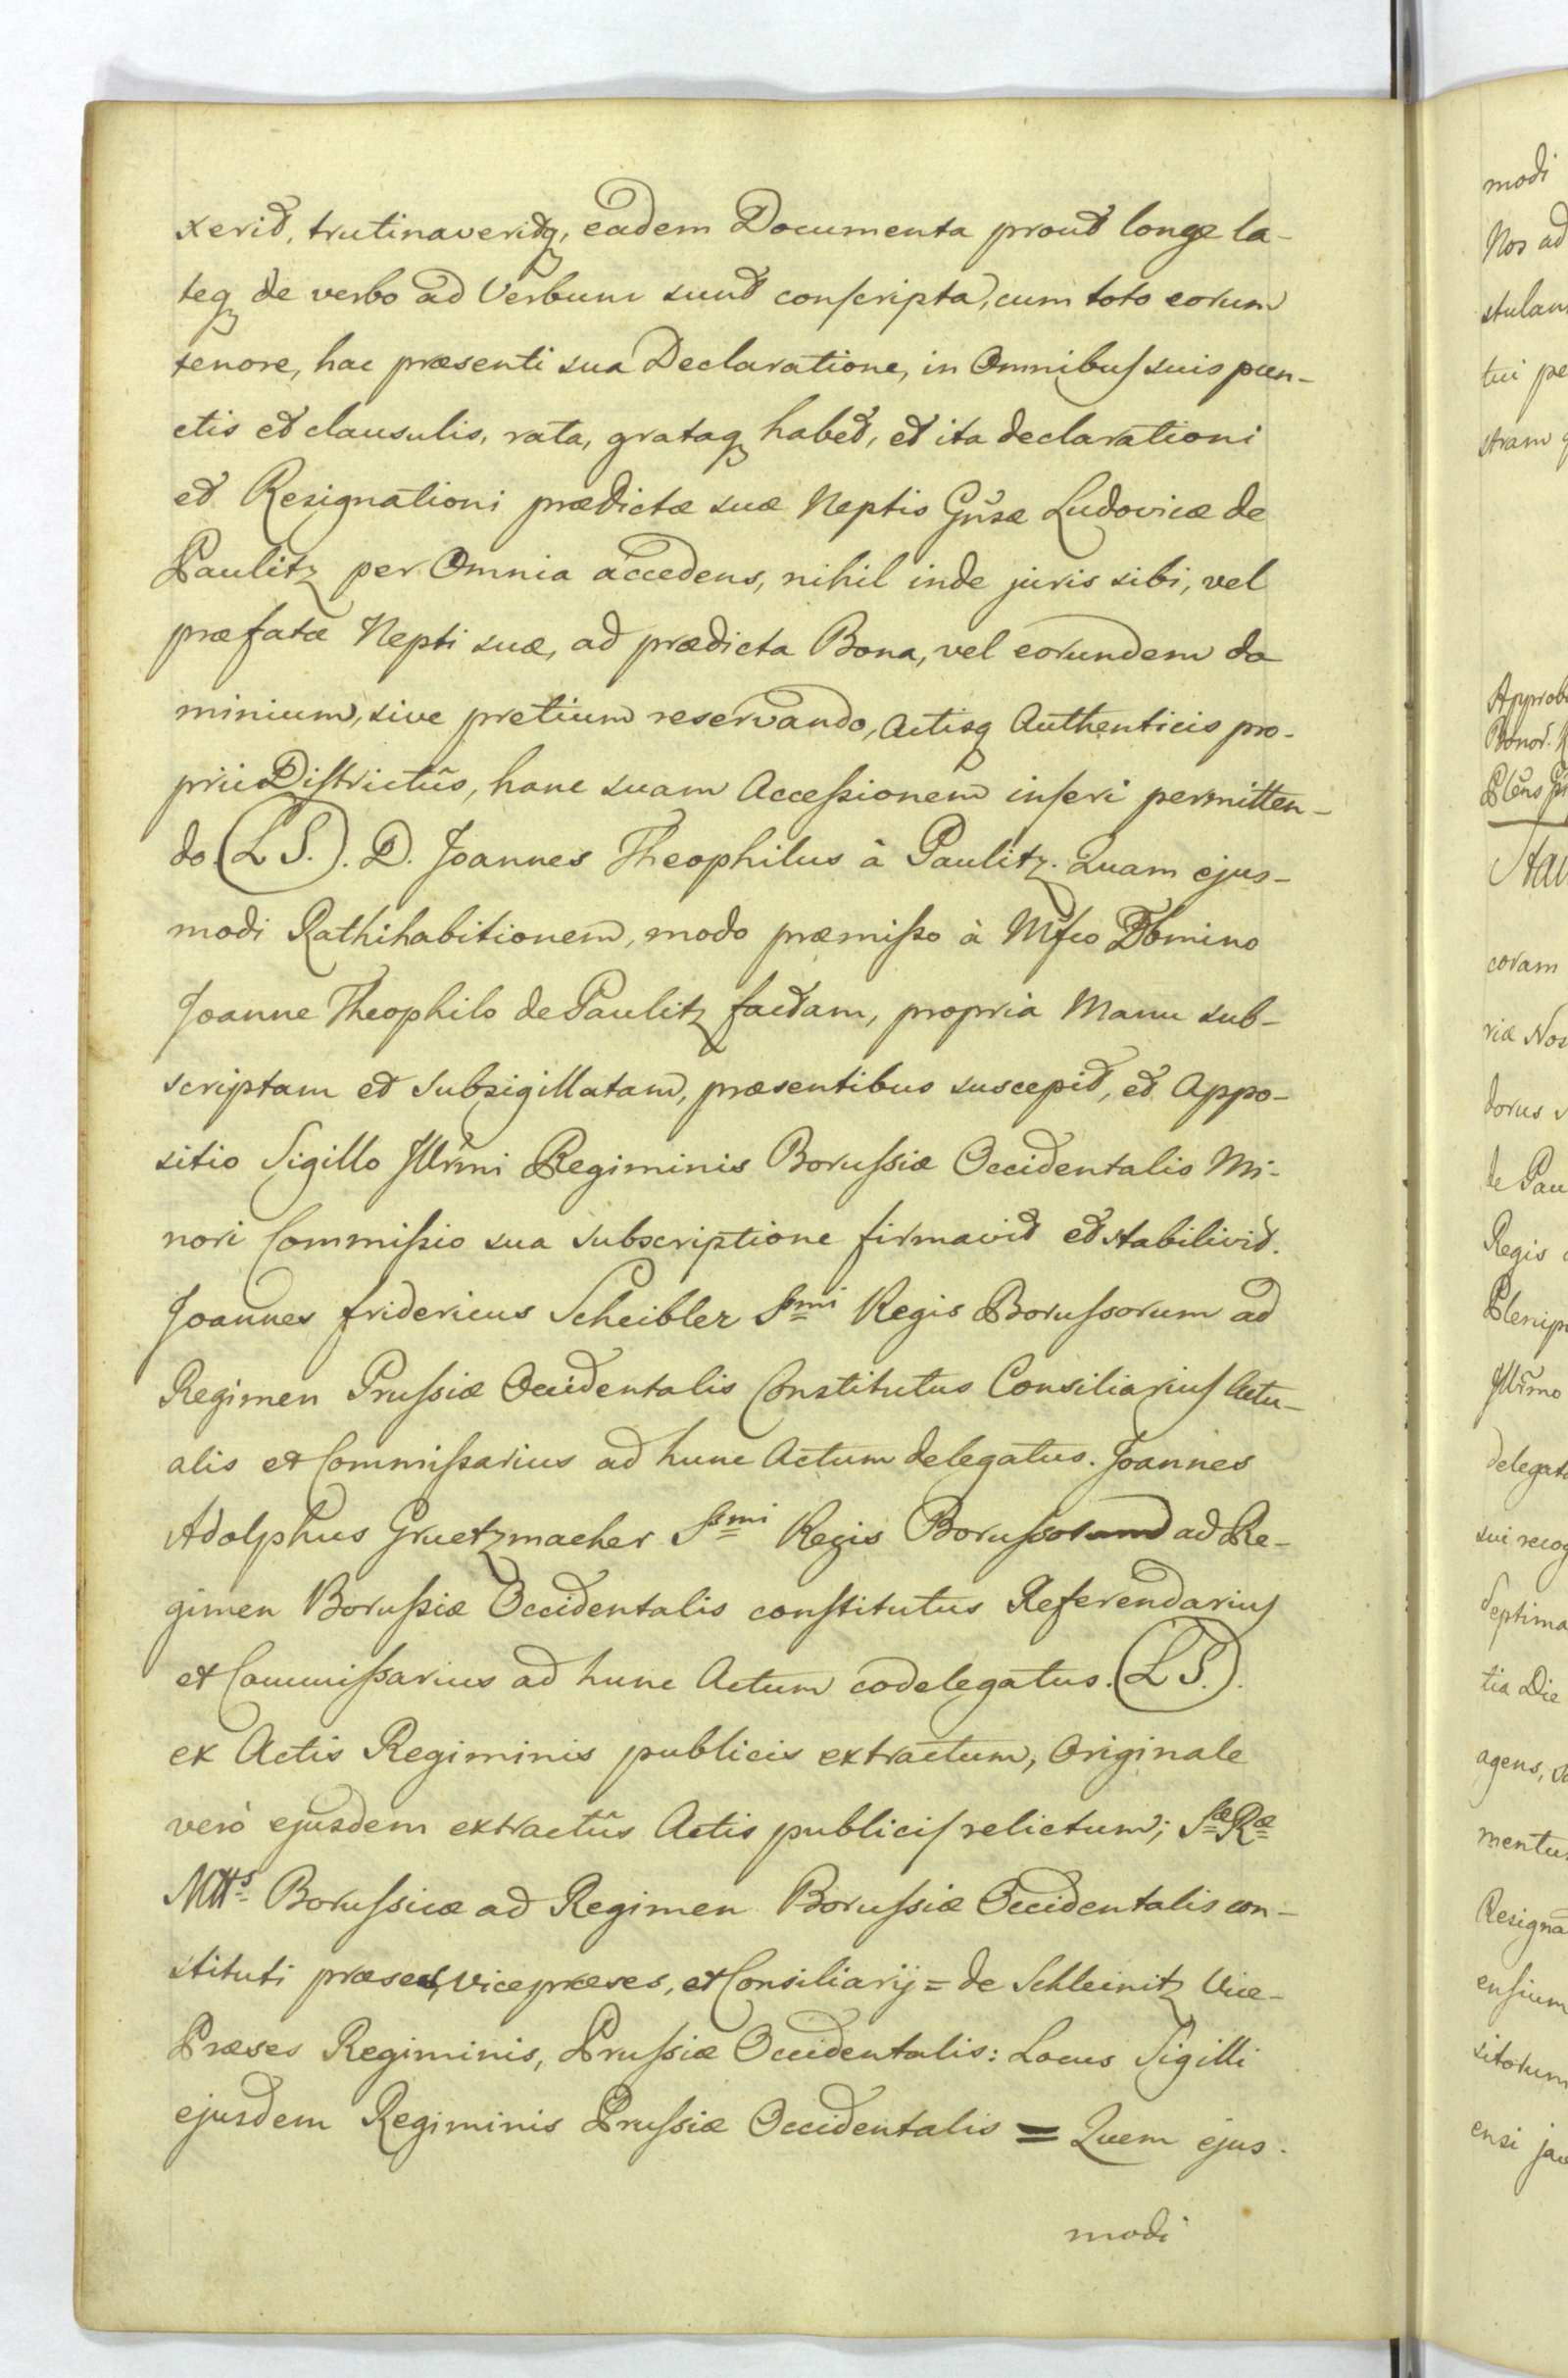 xerit, trutinaveritq, eadem Documenta prout longe la-
teq de verbo ad Verbum sunt conscripta, cum toto eorum
tenore, hac præsenti sua Declaratione, in Omnibus suis pun-
ctis et clausulis, rata, grataq habet, et ita declarationi
et Resignationi prædictæ suæ Neptis Gnsæ Ludovicæ de
Paulitz per Omnia accedens, nihil inde juris sibi, vel
præfatæ Nepti suæ, ad prædicta Bona, vel eorundem do
minium, sive pretium reservando, Actisq Authenticis pro-
prii Districtûs, hanc suam Accessionem inseri permitten-
do (L S.). D. Joannes Theophilus â Paulitz. Quam ejus-
modi Rathihabitionem, modo præmisso à Mfco Domino
Joanne Theophilo de Paulitz factam, propria Manu sub-
scriptam et subsigillatam, præsentibus suscepit, et Appo-
sitio Sigillo Jllrmi Regiminis Borussiæ Occidentalis Mi-
nori Commissio sua subscriptione firmavit et stabilivit.
Joannes fridericus Scheibler Smi Regis Borussorum ad
Regimen Prussiæ Occidentalis Constitutus Consiliarius Actu-
alis et Commissarius ad hunc Actum delegatus. Joannes
Adolphus Gruetzmacher Ssmi Regis Borussorum ad Re-
gimen Borussiæ Occidentalis constitutus Referendarius
et Commissarius ad hunc Actum codelegatus. (L S.).
ex Actis Regiminis publicis extractum, Originale
verò ejusdem extractûs Actis publicis relictum; Sæ Ræ
Mtts Borussicæ ad Regimen Borussiæ Occidentalis con-
stituti præses, Vicepræses, et Consiliarij = de Schleinitz Vice-
Præses Regiminis, Prussiæ Occidentalis: Locus Sigilli
ejusdem Regiminis Prussiæ Occidentalis = Quem ejus.
modi
modi
Nos ad
tui pe
stram
coram
riæ Nos
dorus
de Pau
Regis
Jllrmo
delegat
sui recog
Septima
tia Die
agens,
Resigna
ensium
sitorum